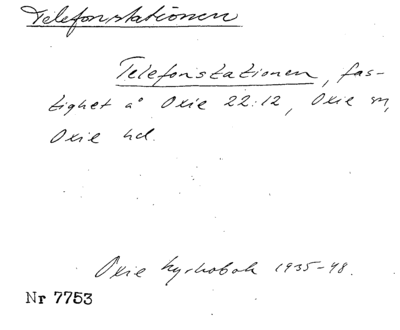 Telefonstationen
Telefonstationen, fas-
tighet å Oxie 22:12, Oxie sn,
Oxie hd.
Oxie kyrkobok 1935-48.
Nr 7753